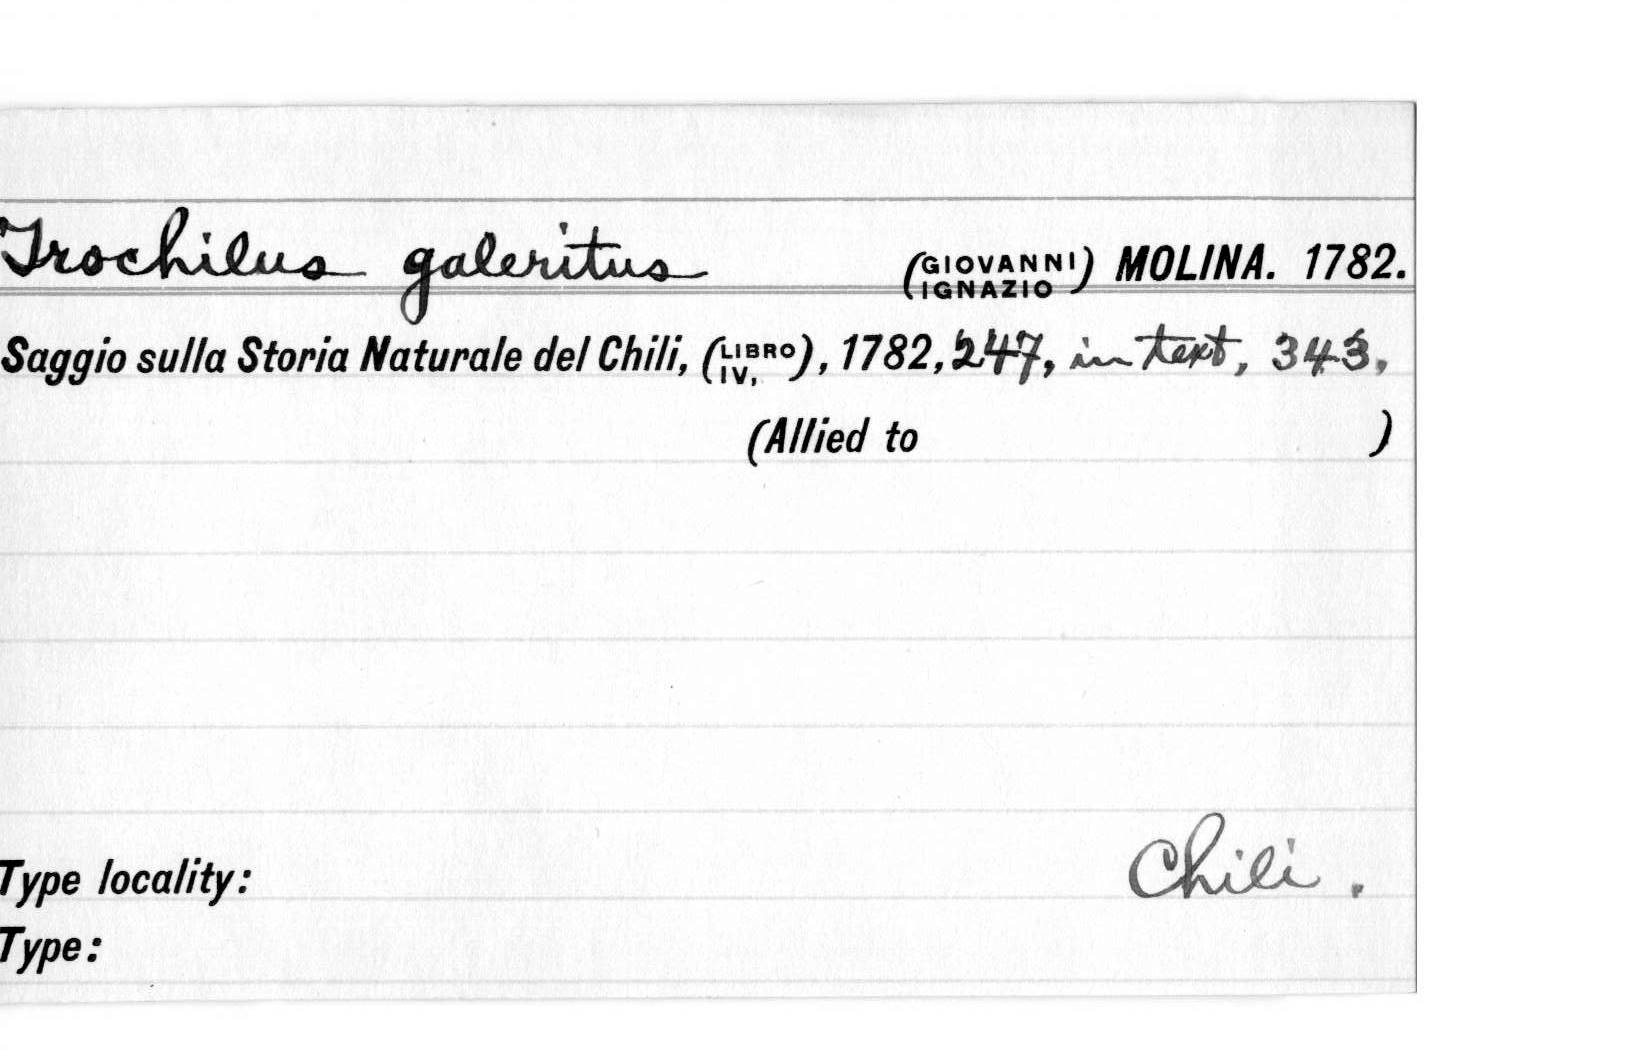 Trochilus galeritus (GIOVANNI IGNAZIO) MOLINA. 1782.
Saggio sulla Storia Naturale del Chili, (LIBRO IV,), 1782, 247, in text, 343,
(Allied to )
Type locality: Chili.
Type: